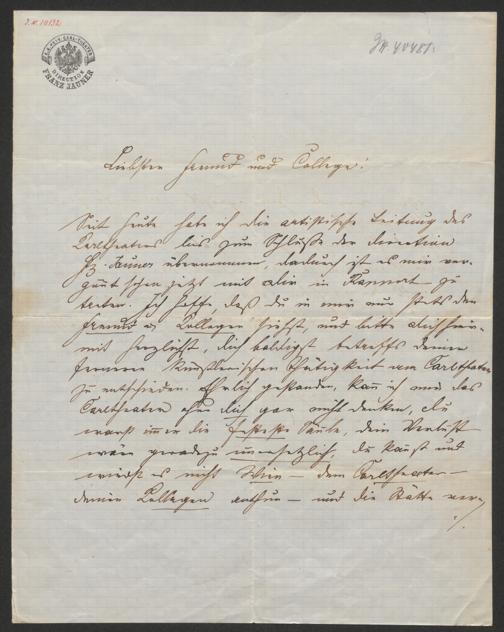 J.N. 10132
JN. 40481.
K.K. PRIV. CARL-THEATER
DIRECTION
FRANZ JAUNER
Liebster Freund und College!
Seit heute habe ich die artistische Leitung des
Carltheaters bis zum Schlusse der Direction
Fz. Jauner übernommen, dadurch ist es mir ver-
gönnt schon jetzt mit dir in Rapport zu
treten. Ich hoffe, daß du in mir nur stets den
Freund u. Collegen siehst, und bitte dich hier-
mit herzlichst, dich baldigst betreffs deiner
ferneren künstlerischen Thätigkeit am Carltheater
zu entscheiden. Ehrlich gestanden, kann ich mir das
Carltheater ohne dich gar nicht denken, du
warst immer die festeste Säule, dein Verlust
wäre geradezu unersetzlich, du kannst und
wirst es nicht Wien – dem Carltheater –
deinen Collegen anthun – und die Stätte ver-
./.